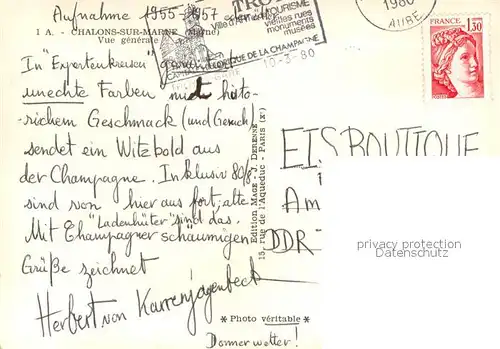 Aufnahme 1955-1957
1 A. - CHALONS-SUR-MARNE (Marne)
Vue générale
TROYES
Ville d'ART TOURISME
vieilles rues
monuments
musées
CAPITALE HISTORIQUE DE LA CHAMPAGNE
10-3-80
1980
AUBE
1,30
In "Expertenkreisen"
unechte Farben histo-
rischem Geschmack (und Geruch)
sendet ein Witzbold aus
der Champagne. Inklusiv 80/8
sind von hier aus fort; alte
"Ladenhüter" sind das.
Mit Champagner schäumigen
Grüße zeichnet
Herbert von Karrenjagenbeck
Edition MAGE - J. DERENNE
15, rue de l'Aqueduc - PARIS (Xe)
* Photo véritable *
Donner wetter!
EIS BOUTIQUE
Am
DDR -
privacy protection
Datenschutz